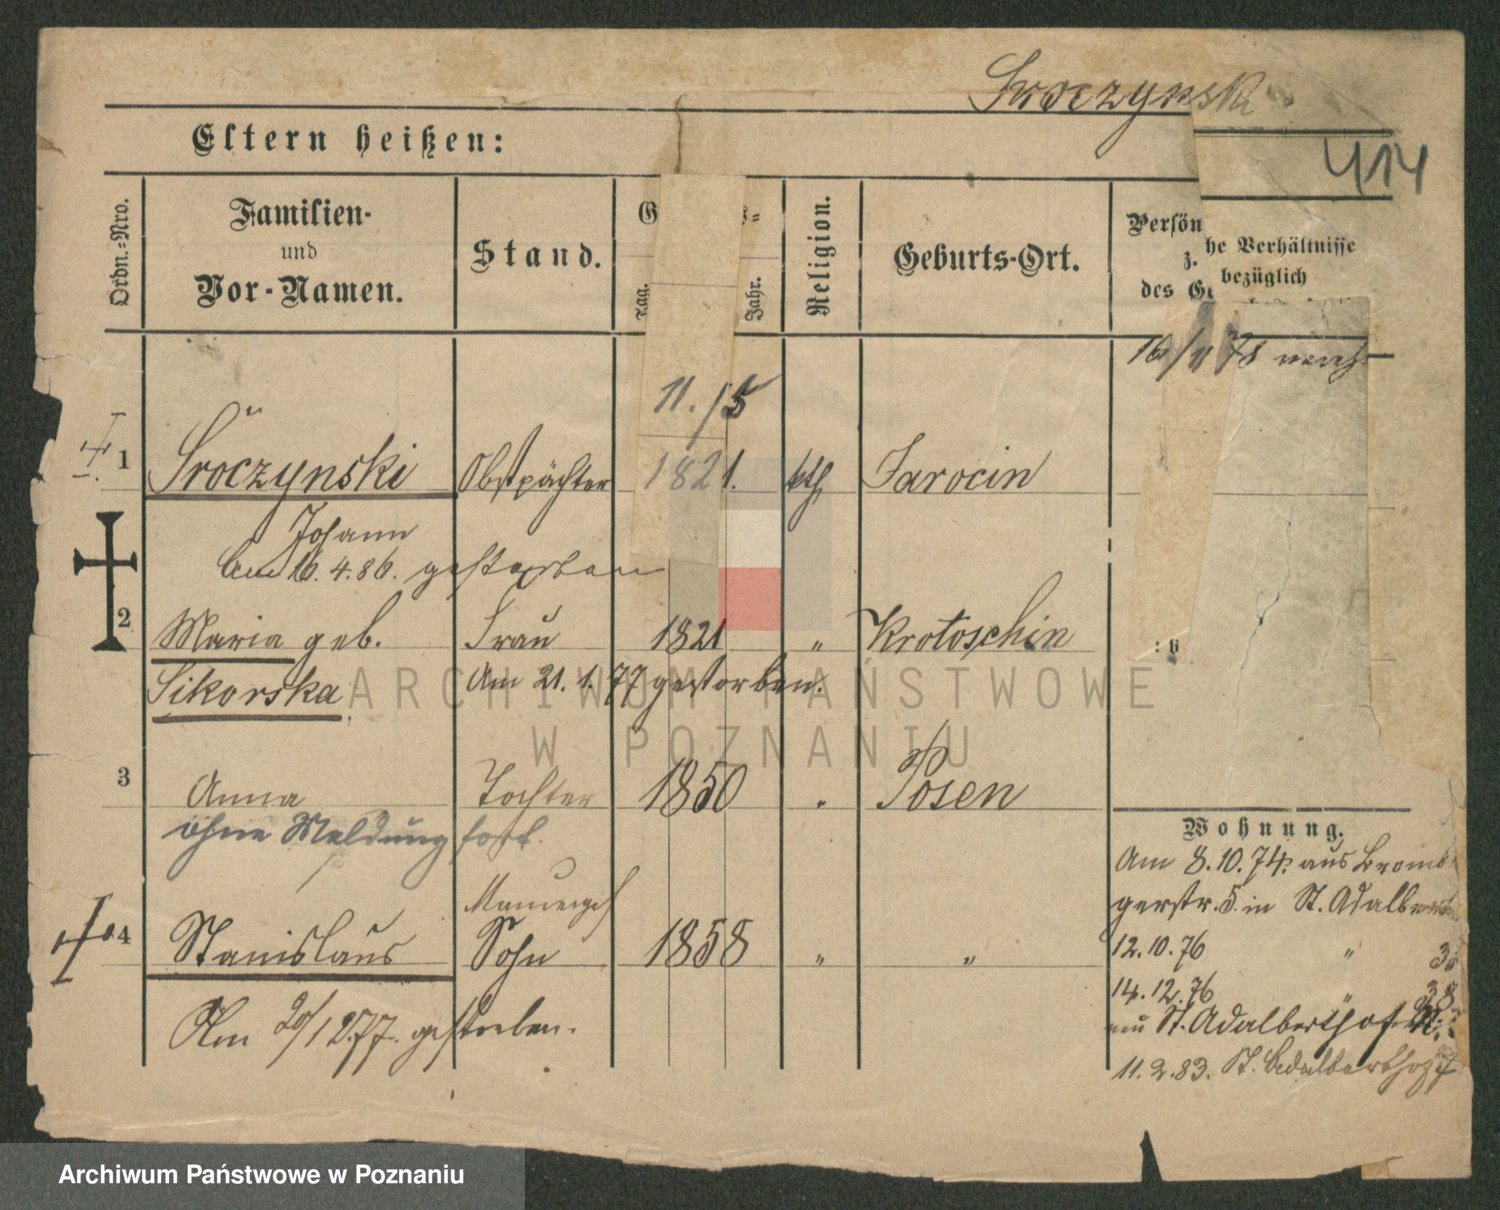 Sroczynski
414
Eltern heißen:
Ordn.=Nro.
Familien-
und
Vor-Namen.
Stand.
G
Tag.
Jahr.
Religion.
Geburts-Ort.
Persön he Verhältnisse
z. bezüglich
des Ge
16/11 78
11./5
1 Sroczynski Obstpächter 1821. kth Jarocin
Johann
Am 16.4.86. gestorben
2 Maria geb. Frau 1821 " Krotoschin
Sikorska Am 21.1.77 gestorben.
3 Anna Tochter 1850 " Posen
ohne Meldung fort.
Maurergs
4 Stanislaus Sohn 1858 " "
Am 20/12 77. gestorben.
Wohnung.
Am 8.10.74. aus Bromb
gerstr. 5. in St. Adalbert
12.10.76 "
14.12.76 " 38
St. Adalberthof
11.2.83. St. Adalberthof
ARCHIWUM PAŃSTWOWE
W POZNANIU
Archiwum Państwowe w Poznaniu